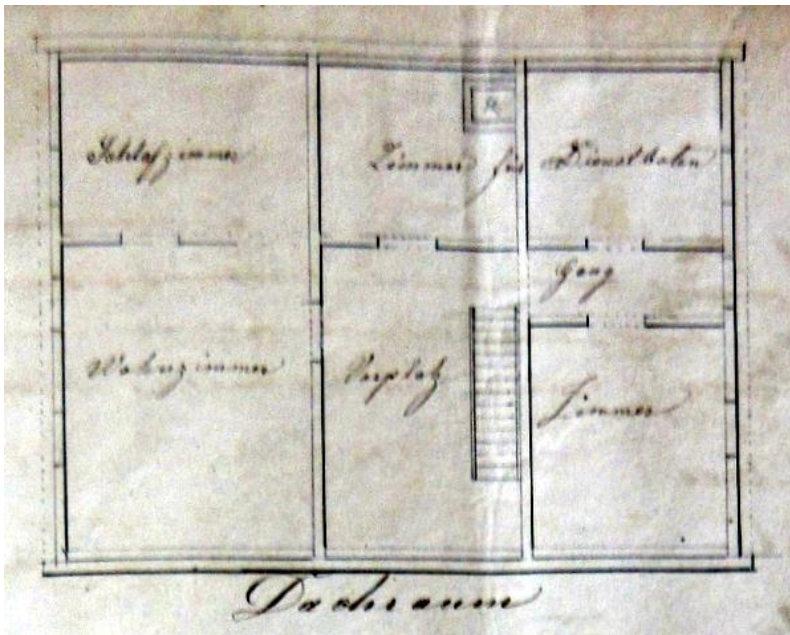 Schlafzimmer
Zimmer für Dienstboten
Gang
Wohnzimmer
Vorplatz
Zimmer
Dachraum